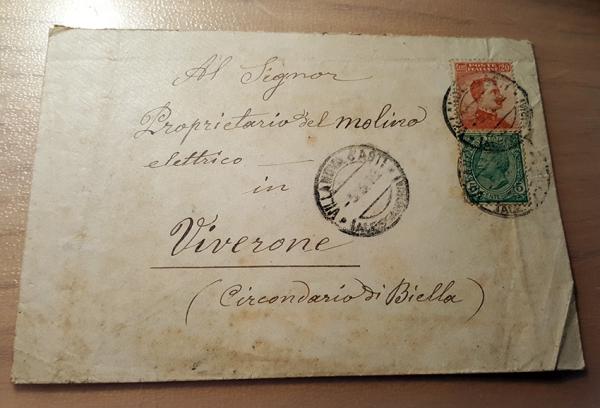 Al Signor
Proprietario del molino
elettrico
in
Viverone
(Circondario di Biella)
POSTE
ITALIANE
20
VILLANOVA D'ASTI
(ALESSANDRIA)